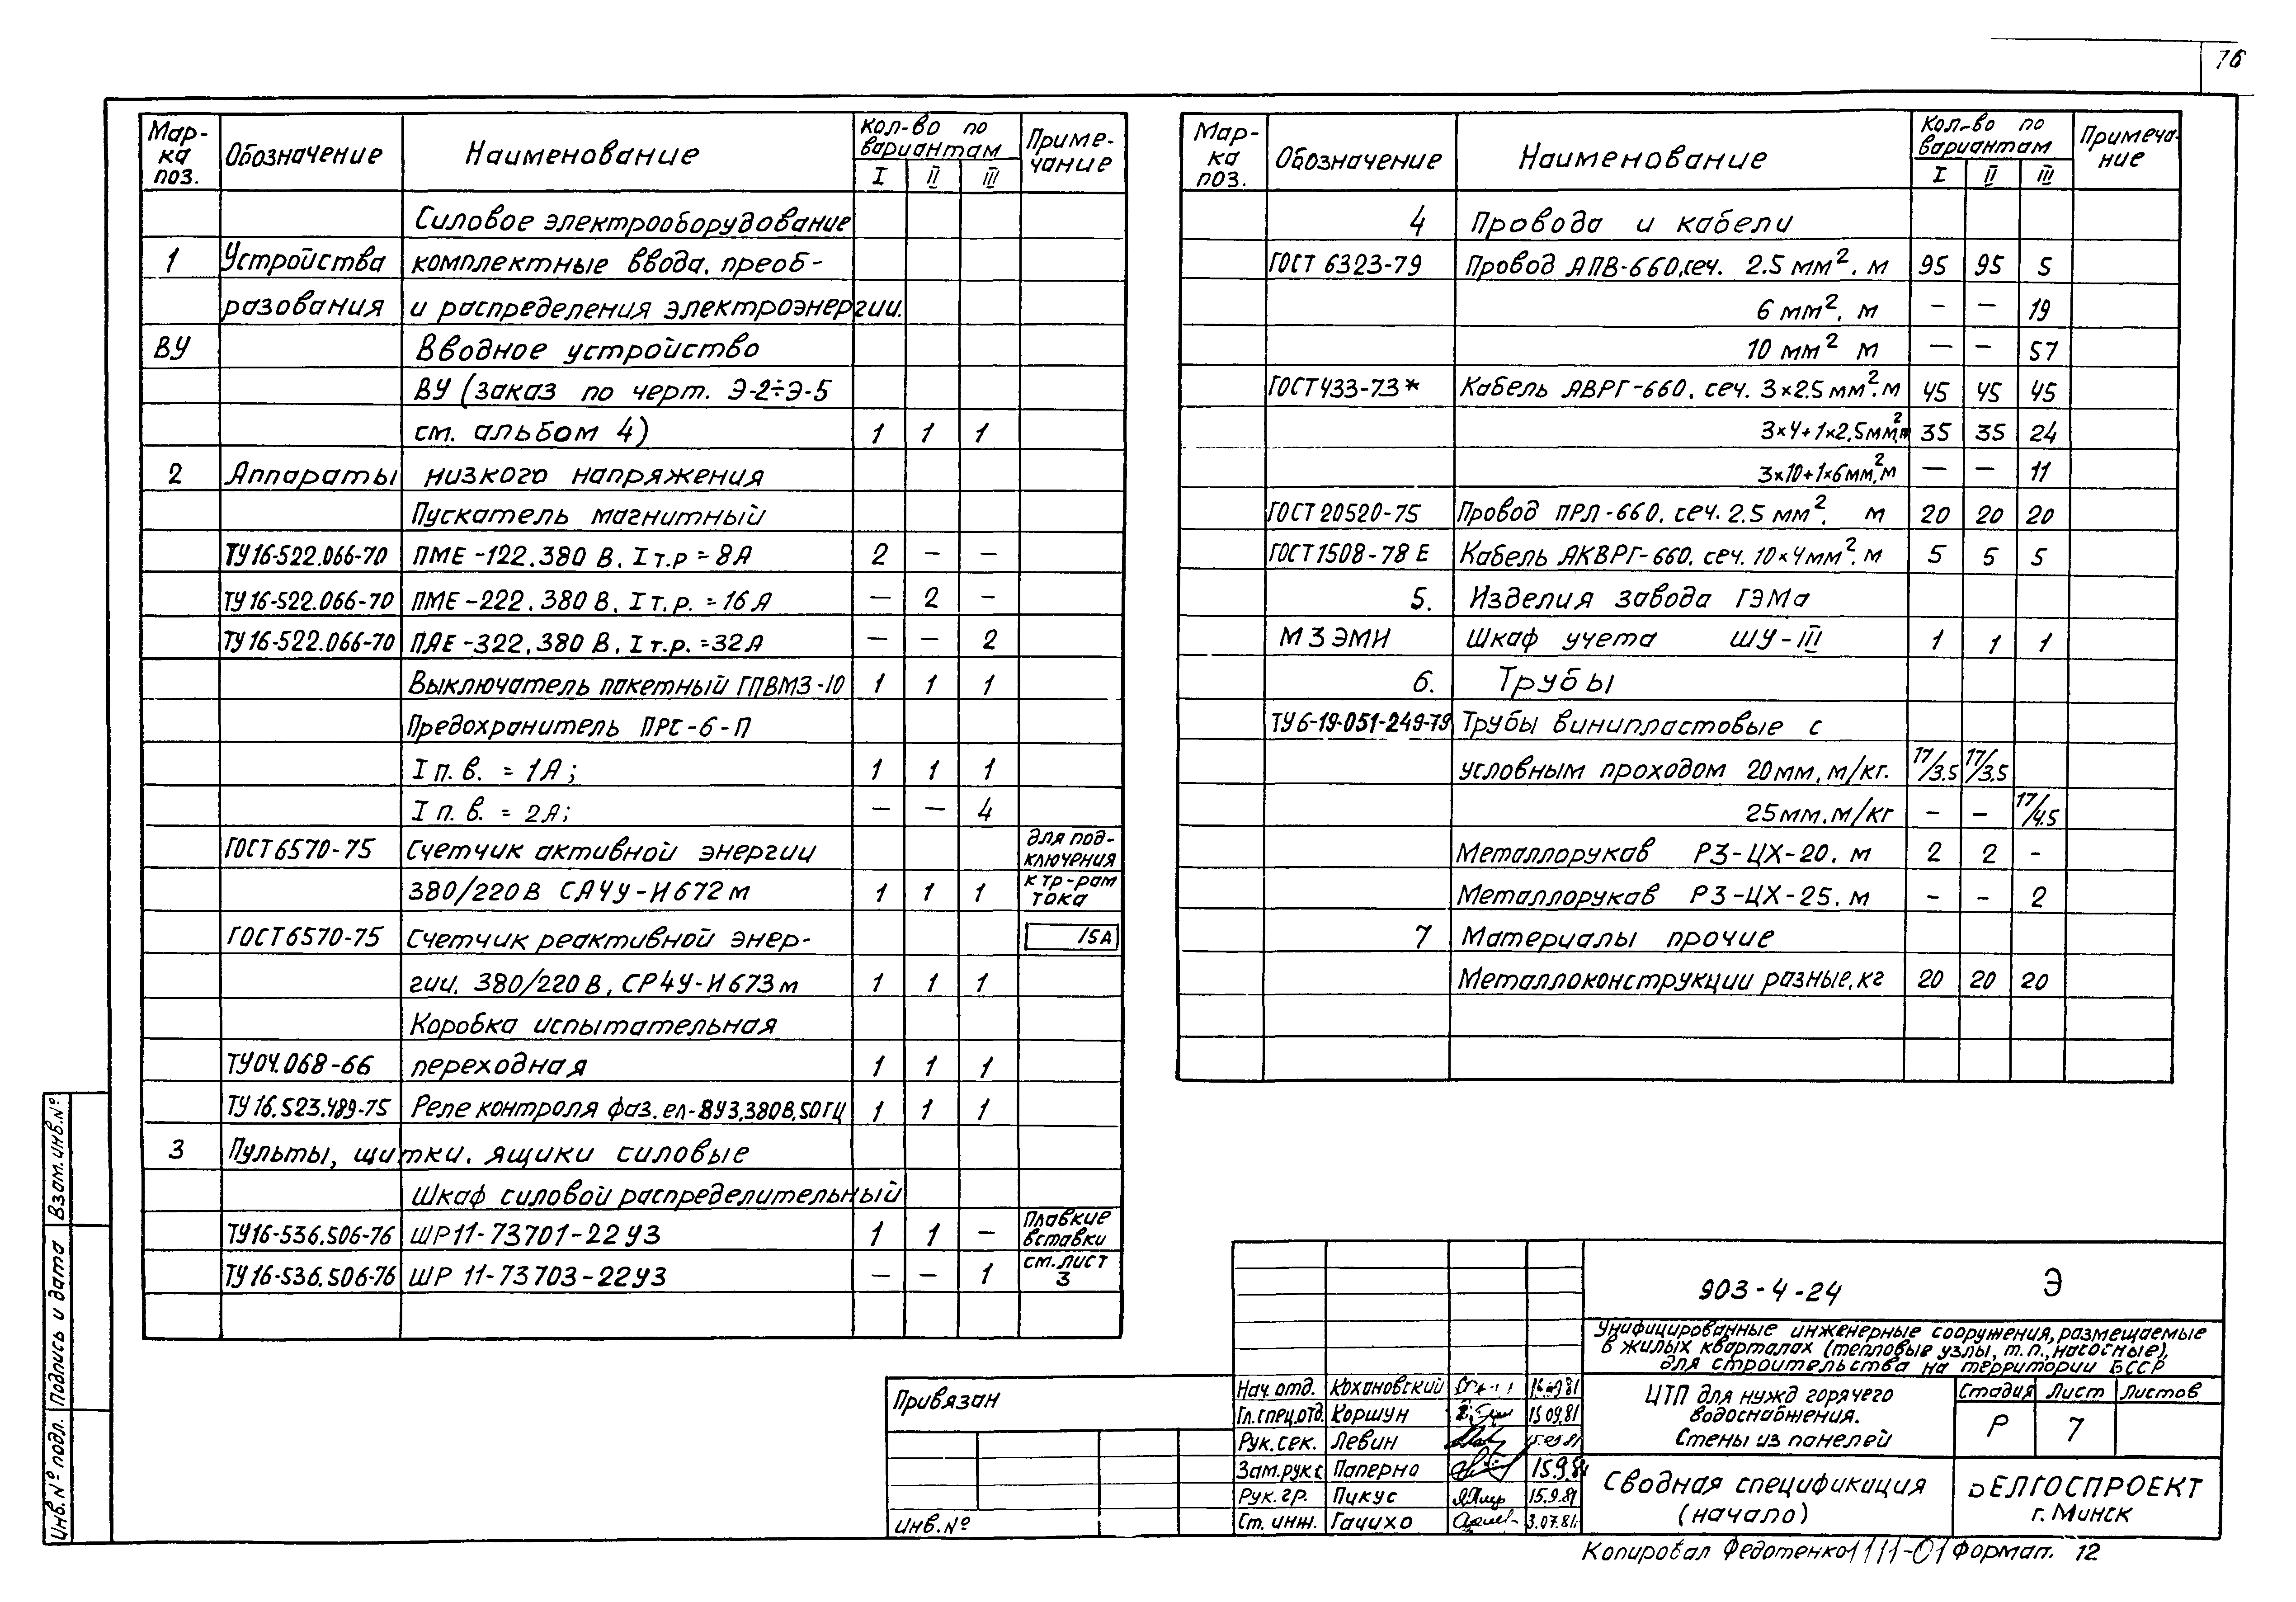 76
Мар-
ка
поз. Обозначение Наименование Кол-во по
вариантам Приме-
чание
I II III
Силовое электрооборудование
1 Устройства комплектные ввода, преоб-
разования и распределения электроэнергии.
ВУ Вводное устройство
ВУ (заказ по черт. Э-2÷Э-5
см. альбом 4) 1 1 1
2 Аппараты низкого напряжения
Пускатель магнитный
ТУ16-522.066-70 ПМЕ-122.380 В. I т.р = 8А 2 — —
ТУ16-522.066-70 ПМЕ-222.380 В. I т.р. = 16А — 2 —
ТУ16-522.066-70 ПАЕ-322.380 В. I т.р. = 32А — — 2
Выключатель пакетный ГПВМ3-10 1 1 1
Предохранитель ПРС-6-П
I п.в. = 1А; 1 1 1
I п.в. = 2А; — — 4
ГОСТ 6570-75 Счетчик активной энергии для под-
ключения
380/220 В САЧУ-И672м 1 1 1 к тр-рам
тока
ГОСТ 6570-75 Счетчик реактивной энер- /5А
гии. 380/220 В, СР4У-И673м 1 1 1
Коробка испытательная
ТУ04.068-66 переходная 1 1 1
ТУ 16.523.489-75 Реле контроля фаз. ел-8У3,380В,50ГЦ 1 1 1
3 Пульты, щитки, ящики силовые
Шкаф силовой распределительный
ТУ16-536.506-76 ШР11-73701-22У3 1 1 — Плавкие
вставки
ТУ16-536.506-76 ШР 11-73703-22У3 — — 1 см. лист
3
Мар-
ка
поз. Обозначение Наименование Кол-во по
вариантам Примеча-
ние
I II III
4 Провода и кабели
ГОСТ 6323-79 Провод АПВ-660, сеч. 2.5 мм². м 95 95 5
6 мм². м — — 19
10 мм² м — — 57
ГОСТ 433-73* Кабель АВРГ-660. сеч. 3×2.5 мм². м 45 45 45
3×4+1×2.5мм², м 35 35 24
3×10+1×6мм², м — — 11
ГОСТ 20520-75 Провод ПРЛ-660. сеч. 2.5 мм². м 20 20 20
ГОСТ 1508-78 Е Кабель АКВРГ-660. сеч. 10×4мм². м 5 5 5
5. Изделия завода ГЭМа
МЗЭМИ Шкаф учета ШУ-III 1 1 1
6. Трубы
ТУ6-19-051-249-79 Трубы винипластовые с
условным проходом 20мм, м/кг. 17/3.5 17/3.5
25мм. м/кг — — 17/4.5
Металлорукав РЗ-ЦХ-20. м 2 2 -
Металлорукав РЗ-ЦХ-25. м - - 2
7 Материалы прочие
Металлоконструкции разные. кг 20 20 20
Взам. инв. №
Подпись и дата
Инв. № подл.
Привязан
инв. №
903-4-24 Э
Унифицированные инженерные сооружения, размещаемые
в жилых кварталах (тепловые узлы, т.п., насосные),
для строительства на территории БССР
Нач. отд. Кохановский
Гл. спец. отд. Коршун 15.09.81
Рук. сек. Левин
Зам. рук с Паперно 15.9.81
Рук. гр. Пикус 15.9.81
Ст. инж. Гачихо 3.07.81
ЦТП для нужд горячего
водоснабжения.
Стены из панелей
Стадия Лист Листов
Р 7
Сводная спецификация
(начало)
БЕЛГОСПРОЕКТ
г. Минск
Копировал Федотенко 1111-01 Формат. 12